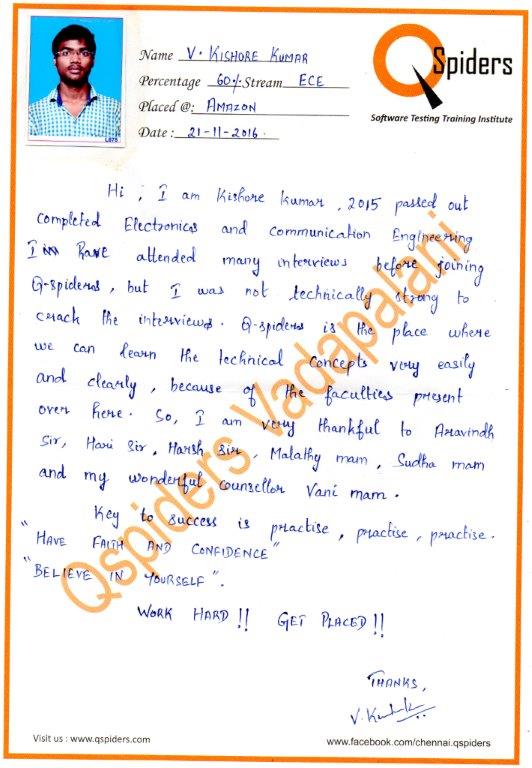 Name V. KISHORE KUMAR
Percentage 60% Stream ECE
Placed @: AMAZON
Date : 21-11-2016.
QSpiders
Software Testing Training Institute
L875
Hi, I am Kishore Kumar, 2015 passed out
completed Electronics and communication Engineering
I have attended many interviews before joining
Q-spiders, but I was not technically strong to
crack the interviews. Q-spiders is the place where
we can learn the technical concepts very easily
and clearly, because of the faculties present
over here. So, I am very thankful to Aravindh
Sir, Hari Sir, Harsh Sir, Malathy mam, Sudha mam
and my wonderful counsellor Vani mam.
Key to success is practise, practise, practise.
"HAVE FAITH AND CONFIDENCE"
"BELIEVE IN YOURSELF".
WORK HARD!! GET PLACED!!
THANKS,
Qspiders Vadapalani
Visit us : www.qspiders.com
www.facebook.com/chennai.qspiders